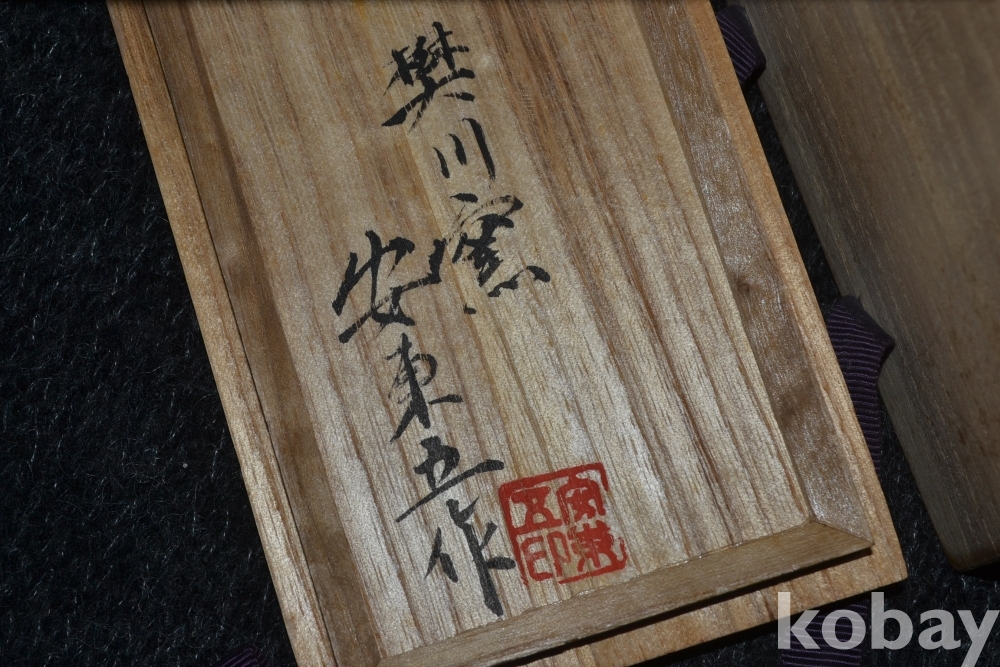 樊川窯
安東五作
安東五印
kobay